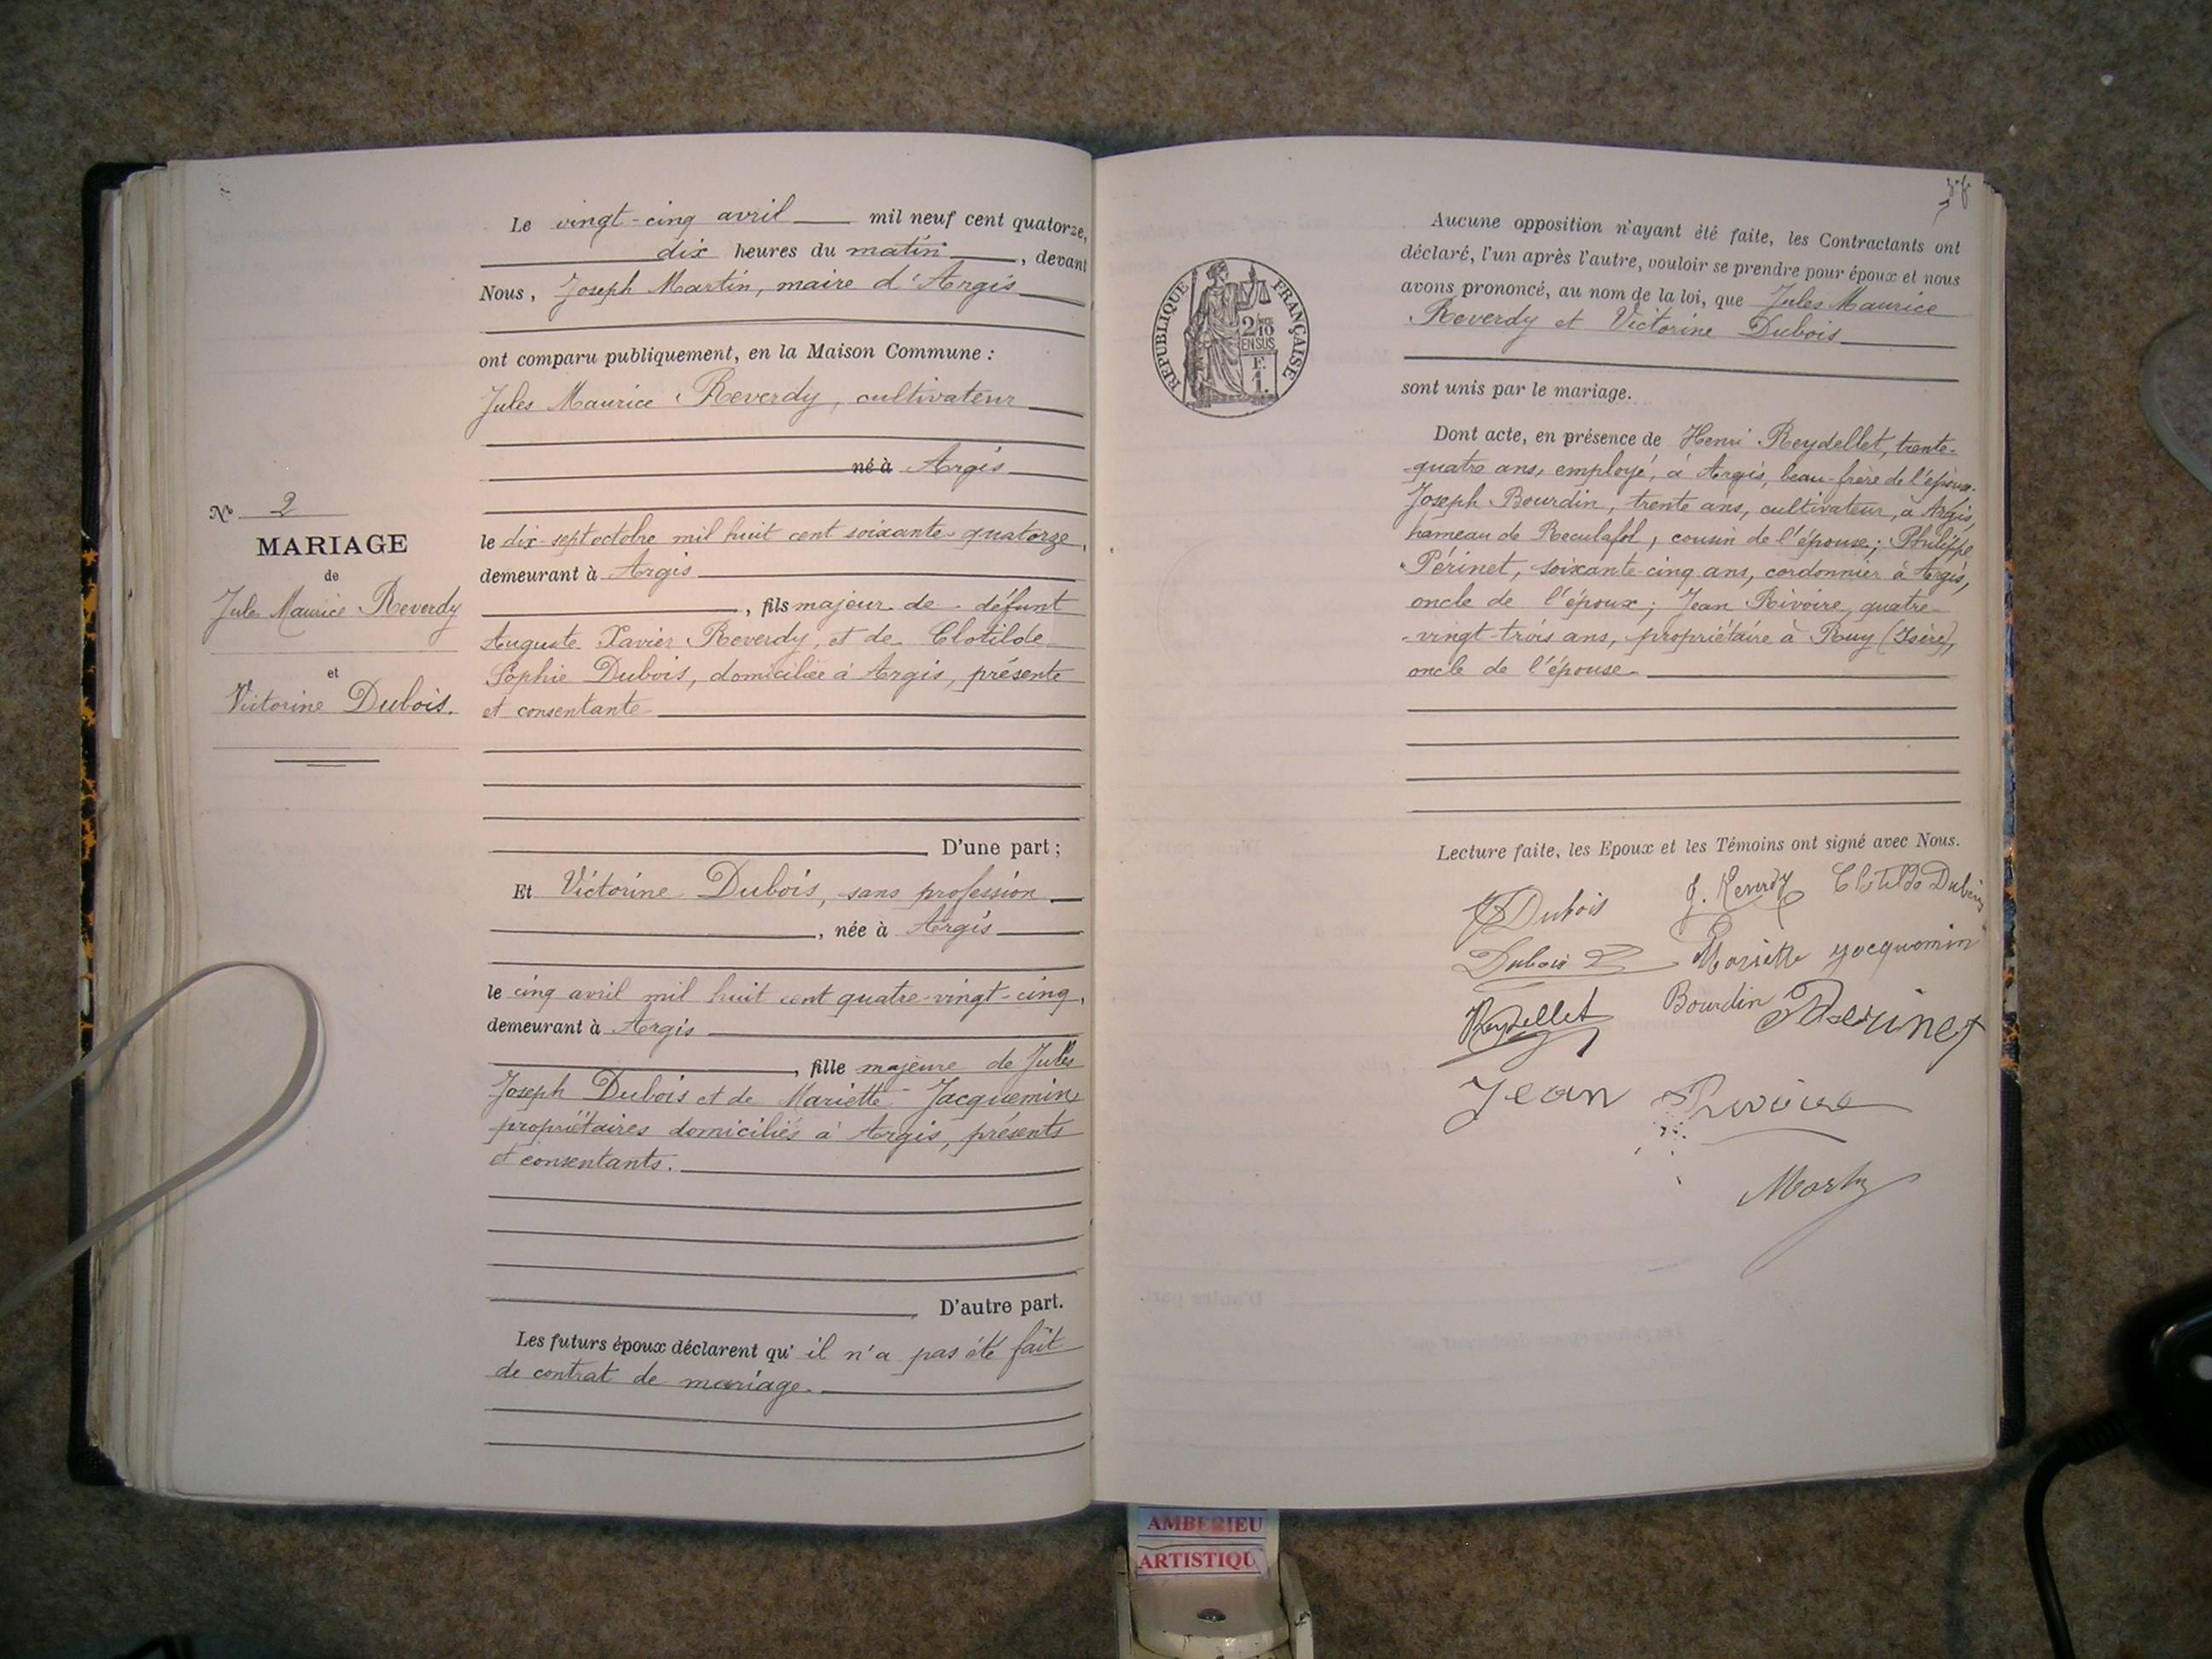 N° 2
MARIAGE
de
Jules Maurice Reverdy
et
Victorine Dubois.
Le vingt-cinq avril mil neuf cent quatorze,
dix heures du matin, devant
Nous, Joseph Martin, maire d'Argis
ont comparu publiquement, en la Maison Commune :
Jules Maurice Reverdy, cultivateur
né à Argis
le dix-sept octobre mil huit cent soixante-quatorze,
demeurant à Argis
, fils majeur de défunt
Auguste Xavier Reverdy, et de Clotilde
Sophie Dubois, domiciliée à Argis, présente
et consentante
D'une part ;
Et Victorine Dubois, sans profession
, née à Argis
le cinq avril mil huit cent quatre-vingt-cinq,
demeurant à Argis
, fille majeure de Jules
Joseph Dubois et de Mariette Jacquemin,
propriétaires domiciliés à Argis, présents
et consentants.
D'autre part.
Les futurs époux déclarent qu'il n'a pas été fait
de contrat de mariage.
RÉPUBLIQUE FRANÇAISE
2/10
EN SUS
F.
1.
Aucune opposition n'ayant été faite, les Contractants ont
déclaré, l'un après l'autre, vouloir se prendre pour époux et nous
avons prononcé, au nom de la loi, que Jules Maurice
Reverdy et Victorine Dubois
sont unis par le mariage.
Dont acte, en présence de Henri Reydellet, trente-
quatre ans, employé, à Argis, beau-frère de l'époux.
Joseph Bourdin, trente ans, cultivateur, à Argis,
hameau de Reculafol, cousin de l'épouse ; Philippe
Périnet, soixante-cinq ans, cordonnier à Argis,
oncle de l'époux ; Jean Rivoire, quatre-
-vingt-trois ans, propriétaire à Ruy (Isère),
oncle de l'épouse.
Lecture faite, les Epoux et les Témoins ont signé avec Nous.
Dubois J. Reverdy Clotilde Dubois
Dubois Mariette Jacquemin
Reydellet Bourdin Perinet
Jean Rivoire
Martin
AMBERIEU
ARTISTIQU